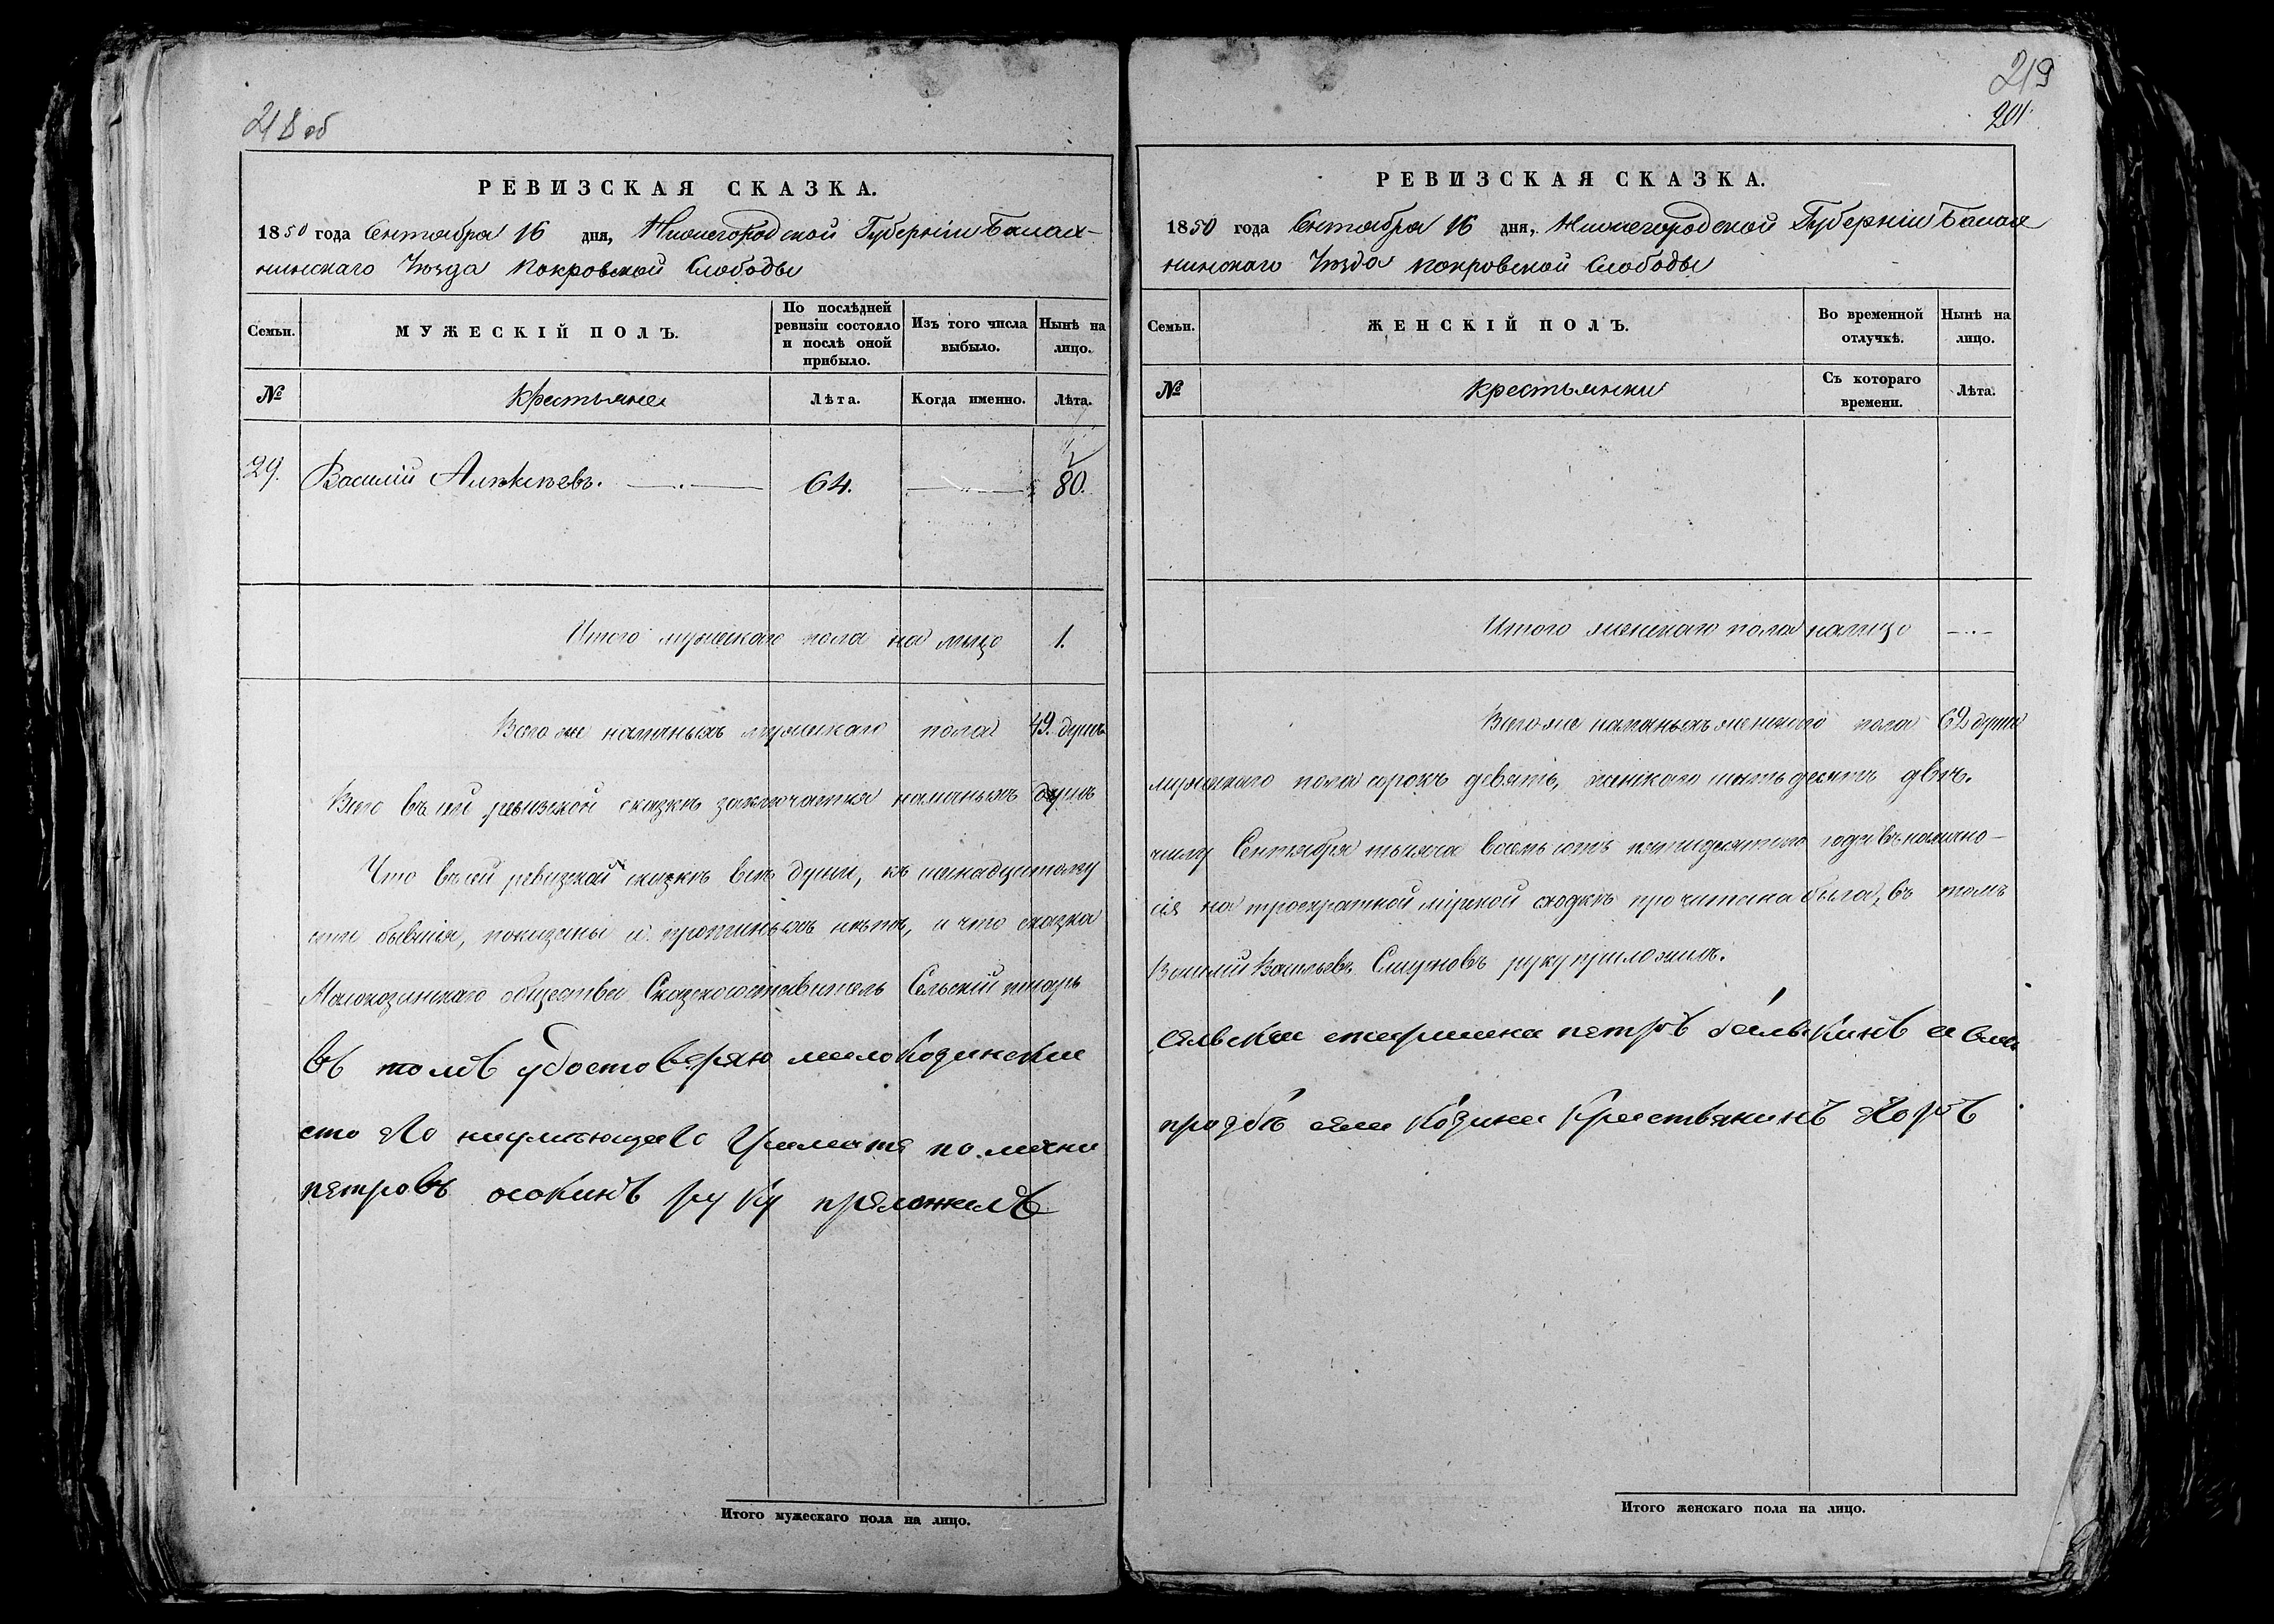 218 об
РЕВИЗСКАЯ СКАЗКА.
1850 года Сентября 16 дня, Нижегородской Губерніи Балах-
нинскаго Уѣзда Покровской Слободы
Семьи.
МУЖЕСКІЙ ПОЛЪ.
По послѣдней ревизіи состояло и послѣ оной прибыло.
Изъ того числа выбыло.
Нынѣ на лицо.
№
Крестьяне
Лѣта.
Когда именно.
Лѣта.
29. Василій Алѣксѣевъ. 64. 80.
Итого мужескаго пола на лицо 1.
Всего же наличныхъ мужескаго пола 49. душъ
Всего въ сей ревизской сказкѣ заключается наличныхъ душъ
Что въ сей ревизской сказкѣ всѣ души, къ шестнадцатому
сти бывшія, показаны и прописныхъ нѣтъ, и что сказка
Малокозинскаго общества Сказкосоставитель Сельскій писарь
въ томъ удостоверяю мало Козинские
сто Яго неумѣющаво Грамате по
петровъ осокинъ руку преложилъ
Итого мужескаго пола на лицо.
219
201.
РЕВИЗСКАЯ СКАЗКА.
1850 года Сентября 16 дня, Нижегородской Губерніи Балах
нинскаго Уѣзда Покровской Слободы
Семьи.
ЖЕНСКІЙ ПОЛЪ.
Во временной отлучкѣ.
Нынѣ на лицо.
№
Крестьянки
Съ котораго времени.
Лѣта.
Итого женскаго пола на лицо
Всего же наличныхъ женскаго пола 62 души
мужескаго пола сорокъ девять, женскаго шестьдесятъ двѣ.
числу Сентября тысяча восемьсотъ пятидесятаго года въ налично-
сія на троекратной мірской сходкѣ прочитана была, въ томъ
Василій Васильевъ Смирновъ руку приложилъ.
сельскои старшина петръ
Козина Крествянинъ
Итого женскаго пола на лицо.